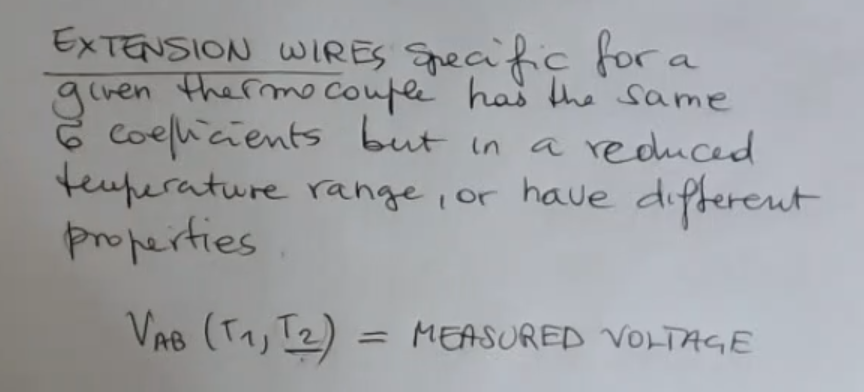 EXTENSION WIRES specific for a
given thermocouple has the same
6 coefficients but in a reduced
temperature range, or have different
properties.
V_AB (T1, T2) = MEASURED VOLTAGE